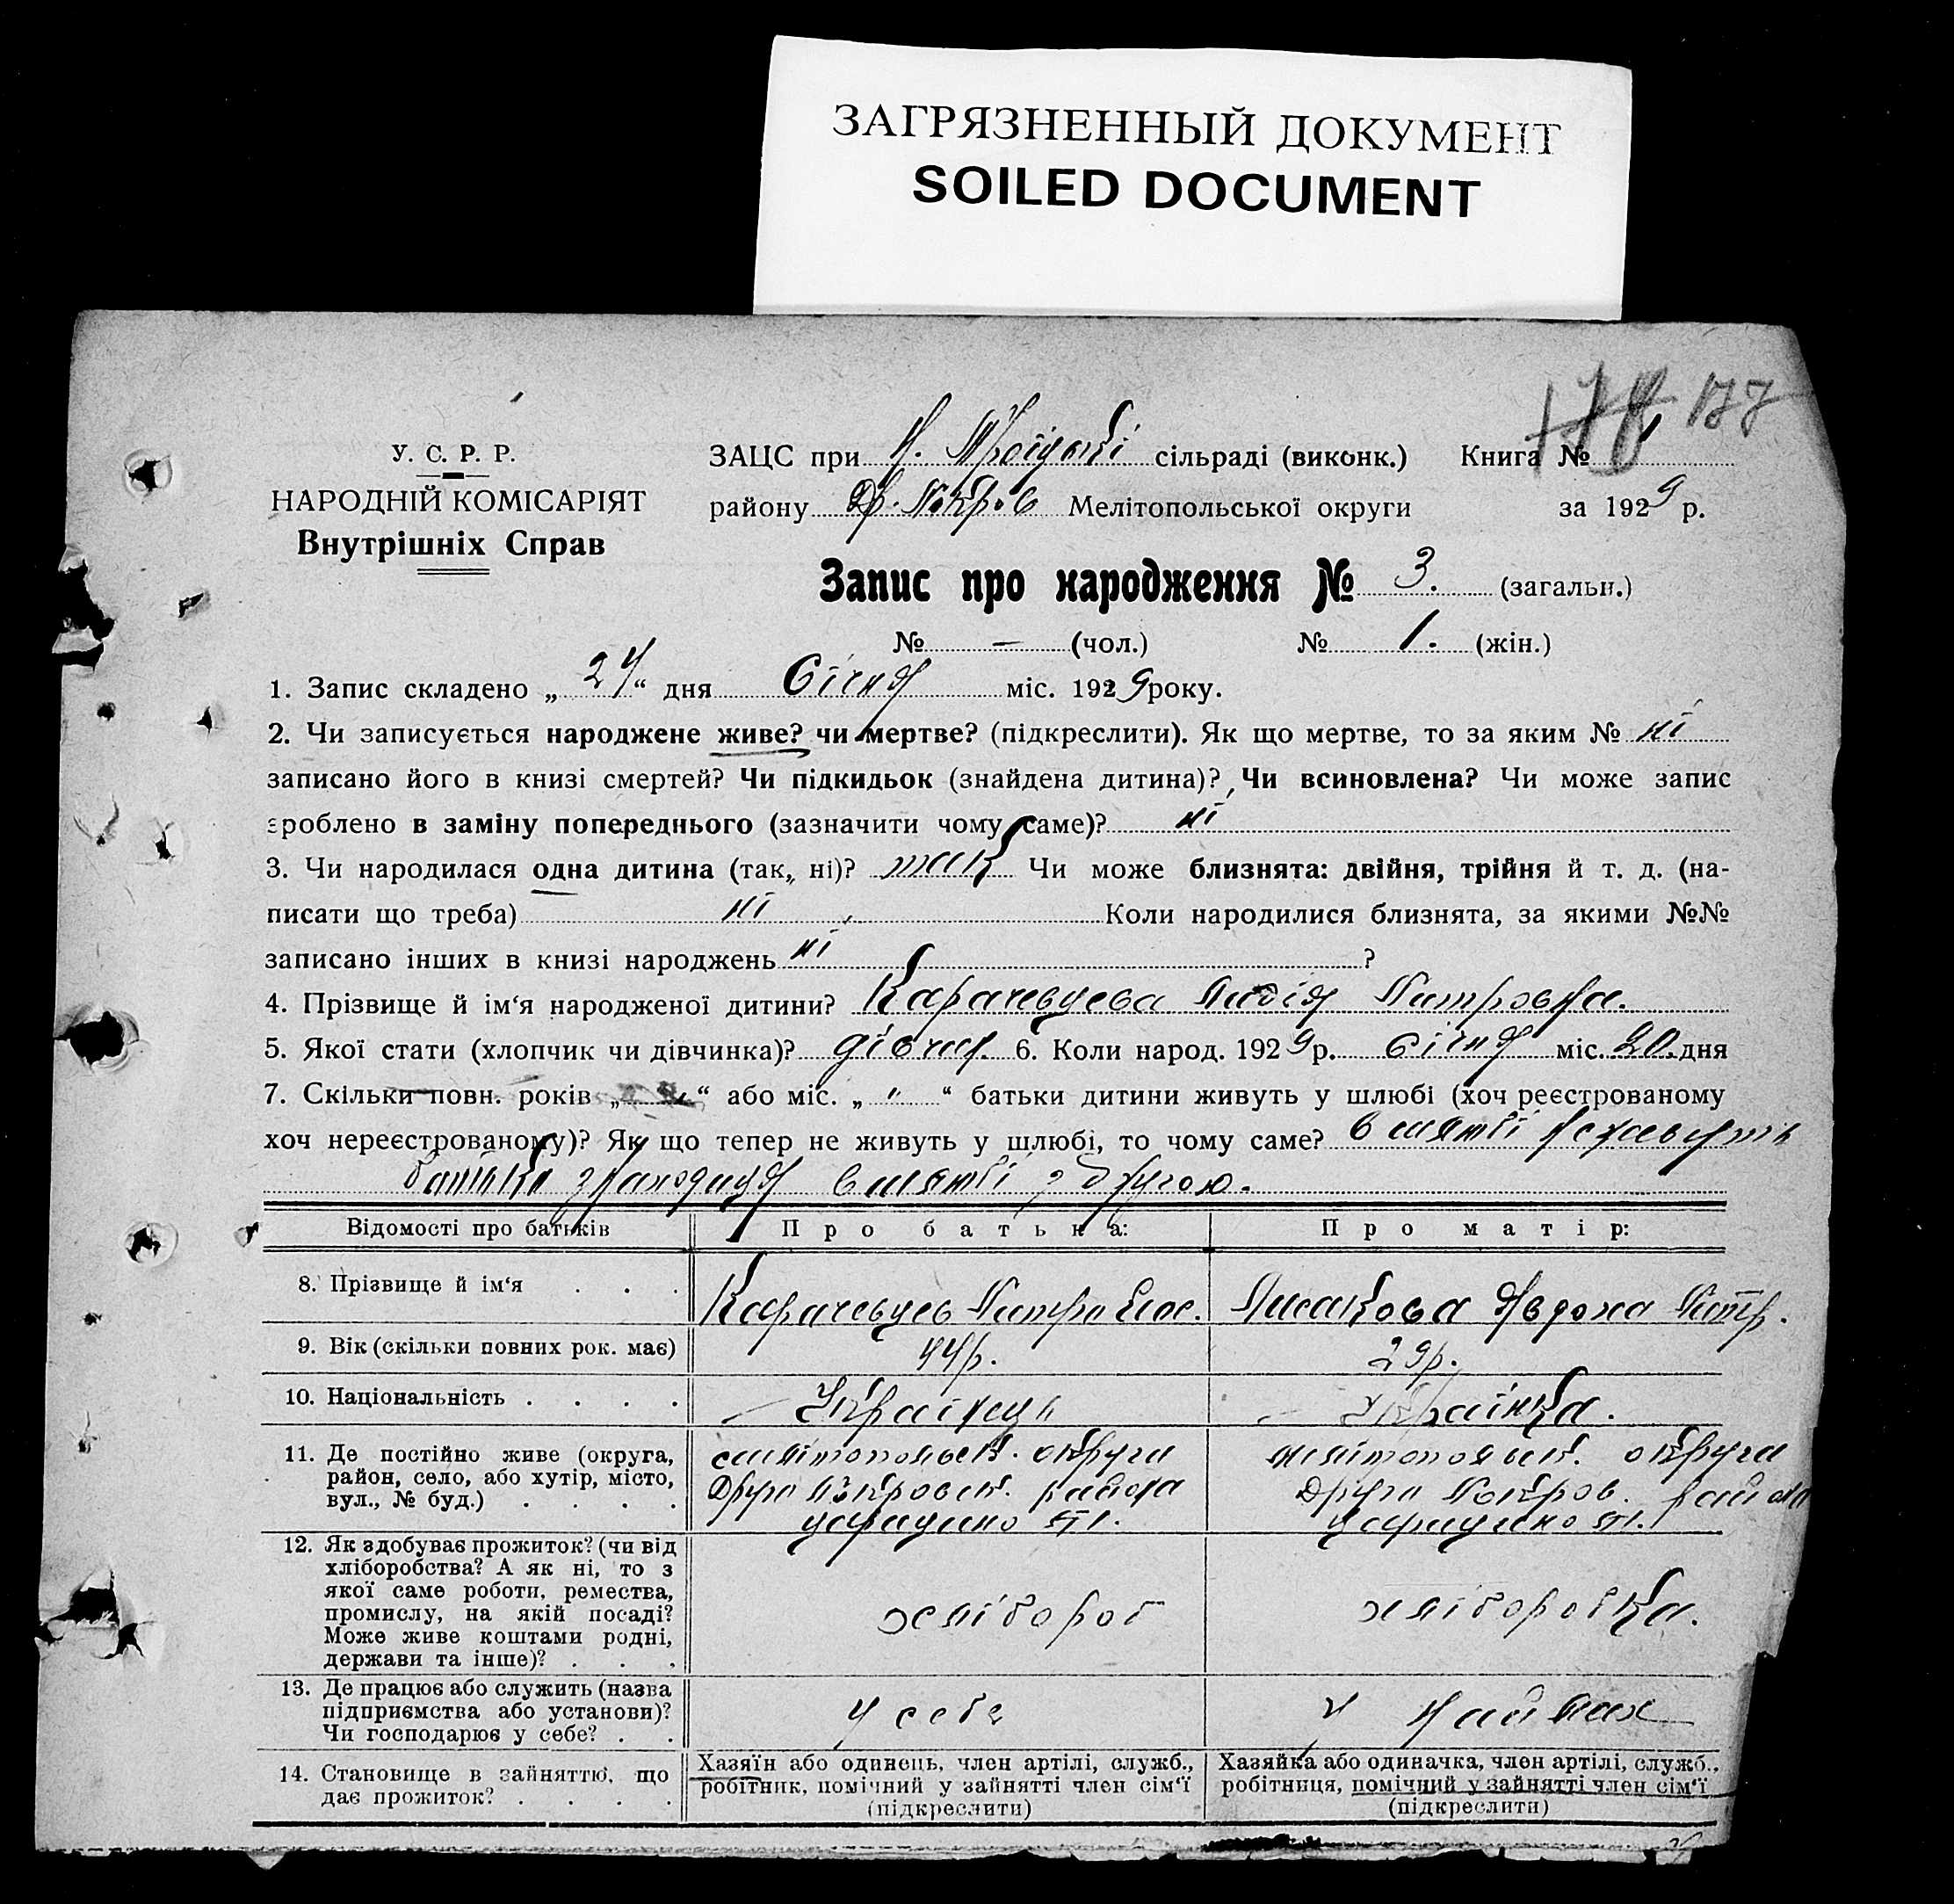 ЗАГРЯЗНЕННЫЙ ДОКУМЕНТ
SOILED DOCUMENT
177
У. С. Р. Р.
НАРОДНІЙ КОМІСАРІЯТ
Внутрішніх Справ
ЗАЦС при Н. Троіцькі сільраді (виконк.) Книга № 1
району Др. Покров Мелітопольської округи за 1929 р.
Запис про народження № 3. (загальн.)
№ — (чол.) № 1. (жін.)
1. Запис складено „ 24 “ дня Січня міс. 1929 року.
2. Чи записується народжене живе? чи мертве? (підкреслити). Як що мертве, то за яким № ні
записано його в книзі смертей? Чи підкидьок (знайдена дитина)? Чи всиновлена? Чи може запис
зроблено в заміну попереднього (зазначити чому саме)? ні
3. Чи народилася одна дитина (так, ні)? так Чи може близнята: двійня, трійня й т. д. (на-
писати що треба) ні Коли народилися близнята, за якими №№
записано інших в книзі народжень ні ?
4. Прізвище й ім‘я народженої дитини? Карачевцева Лидія Питровна.
5. Якої стати (хлопчик чи дівчинка)? дівчи. 6. Коли народ. 1929 р. січня міс. 20. дня
7. Скільки повн. років „ “ або міс. „ “ “ батьки дитини живуть у шлюбі (хоч реєстрованому
хоч нереєстрованому)? Як що тепер не живуть у шлюбі, то чому саме?
батько з другою.
Відомості про батьків Про батька: Про матір:
8. Прізвище й ім‘я . . . Карачевцев Питро Лисакова Явдоха Питр.
9. Вік (скільки повних рок. має) 44р. 29р.
10. Національність . . . . Українець Українка.
11. Де постійно живе (округа, мелітопольск. округи мелітопольск. округи
район, село, або хутір, місто, Друго Покровск. района Друго Покров. района
вул., № буд.) . . . .
12. Як здобуває прожиток? (чи від
хліборобства? А як ні, то з
якої саме роботи, ремества,
промислу, на якій посаді? хлібороб хліборобка.
Може живе коштами родні,
держави та інше)? . . .
13. Де працює або служить (назва
підприємства або установи)? У себе У наймах
Чи господарює у себе? . .
14. Становище в зайняттю, що Хазяїн або одинець, член артілі, служб., Хазяйка або одиначка, член артілі, служб.,
дає прожиток? . . . . робітник, помічний у зайнятті член сім‘ї робітниця, помічний у зайнятті член сім‘ї
(підкреслити) (підкреслити)